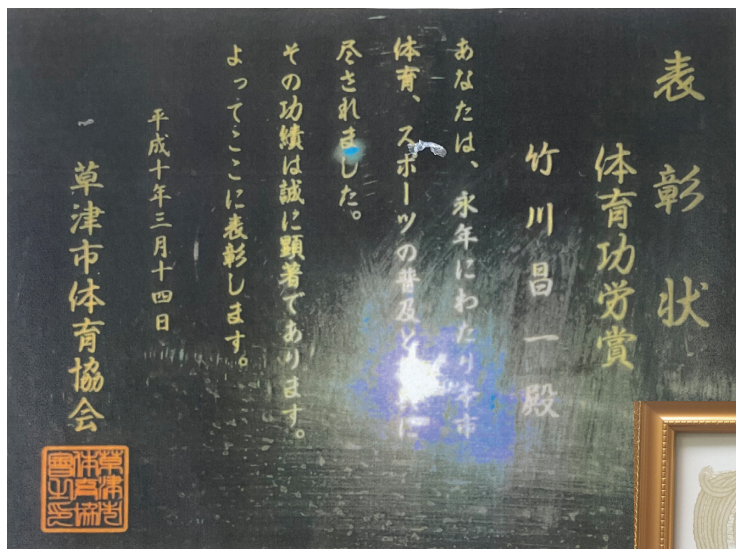 表彰状
体育功労賞
竹川昌一殿
あなたは、永年にわたり本市
体育、スポーツの普及と に
尽されました。
その功績は誠に顕著であります。
よってここに表彰します。
平成十年三月十四日
草津市体育協会
草津市
体育協
會之印